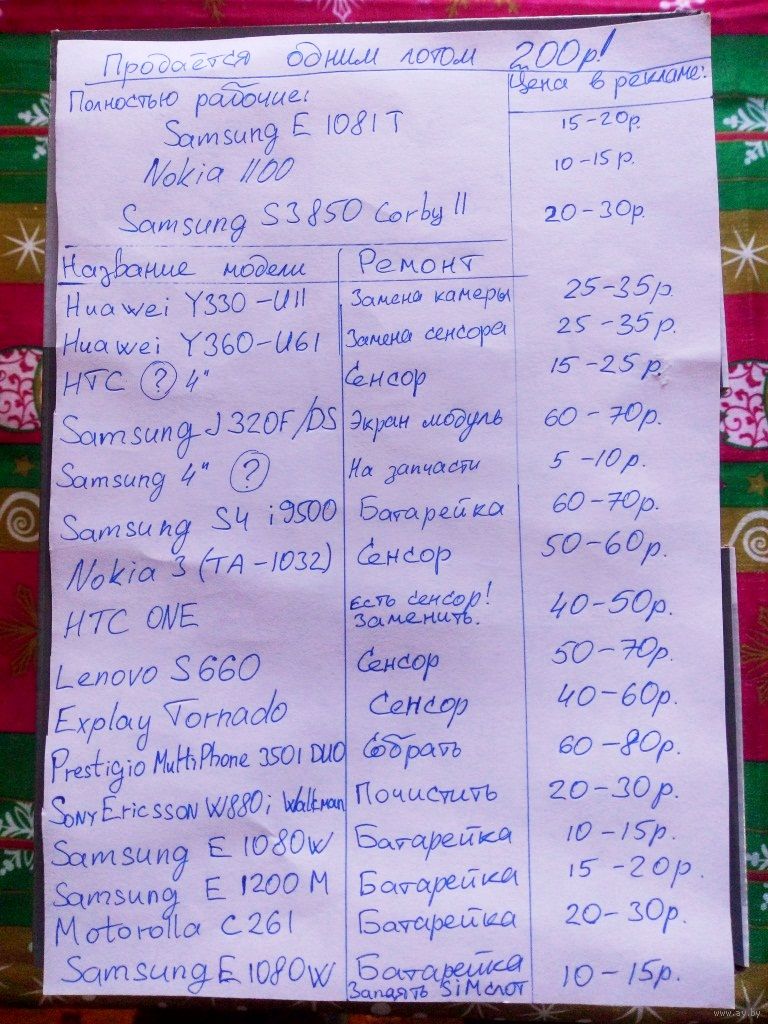 Продаётся одним лотом 200р!
Полностью рабочие: Цена в рекламе:
Samsung E 1081T 15-20р.
Nokia 1100 10-15р.
Samsung S3850 Corby II 20-30р.
Название модели Ремонт
Huawei Y330-U11 Замена камеры 25-35р.
Huawei Y360-U61 Замена сенсора 25-35р.
HTC ? 4" Сенсор 15-25р.
Samsung J320F/DS Экран модуль 60-70р.
Samsung 4" ? На запчасти 5-10р.
Samsung S4 i9500 Батарейка 60-70р.
Nokia 3 (TA-1032) Сенсор 50-60р.
HTC ONE Есть сенсор! Заменить. 40-50р.
Lenovo S660 Сенсор 50-70р.
Explay Tornado Сенсор 40-60р.
Prestigio MultiPhone 3501 DUO Собрать 60-80р.
Sony Ericsson W880i Walkman Почистить 20-30р.
Samsung E 1080W Батарейка 10-15р.
Samsung E 1200M Батарейка 15-20р.
Motorolla C261 Батарейка 20-30р.
Samsung E 1080W Батарейка 10-15р.
Запаять SiM слот
www.ay.by